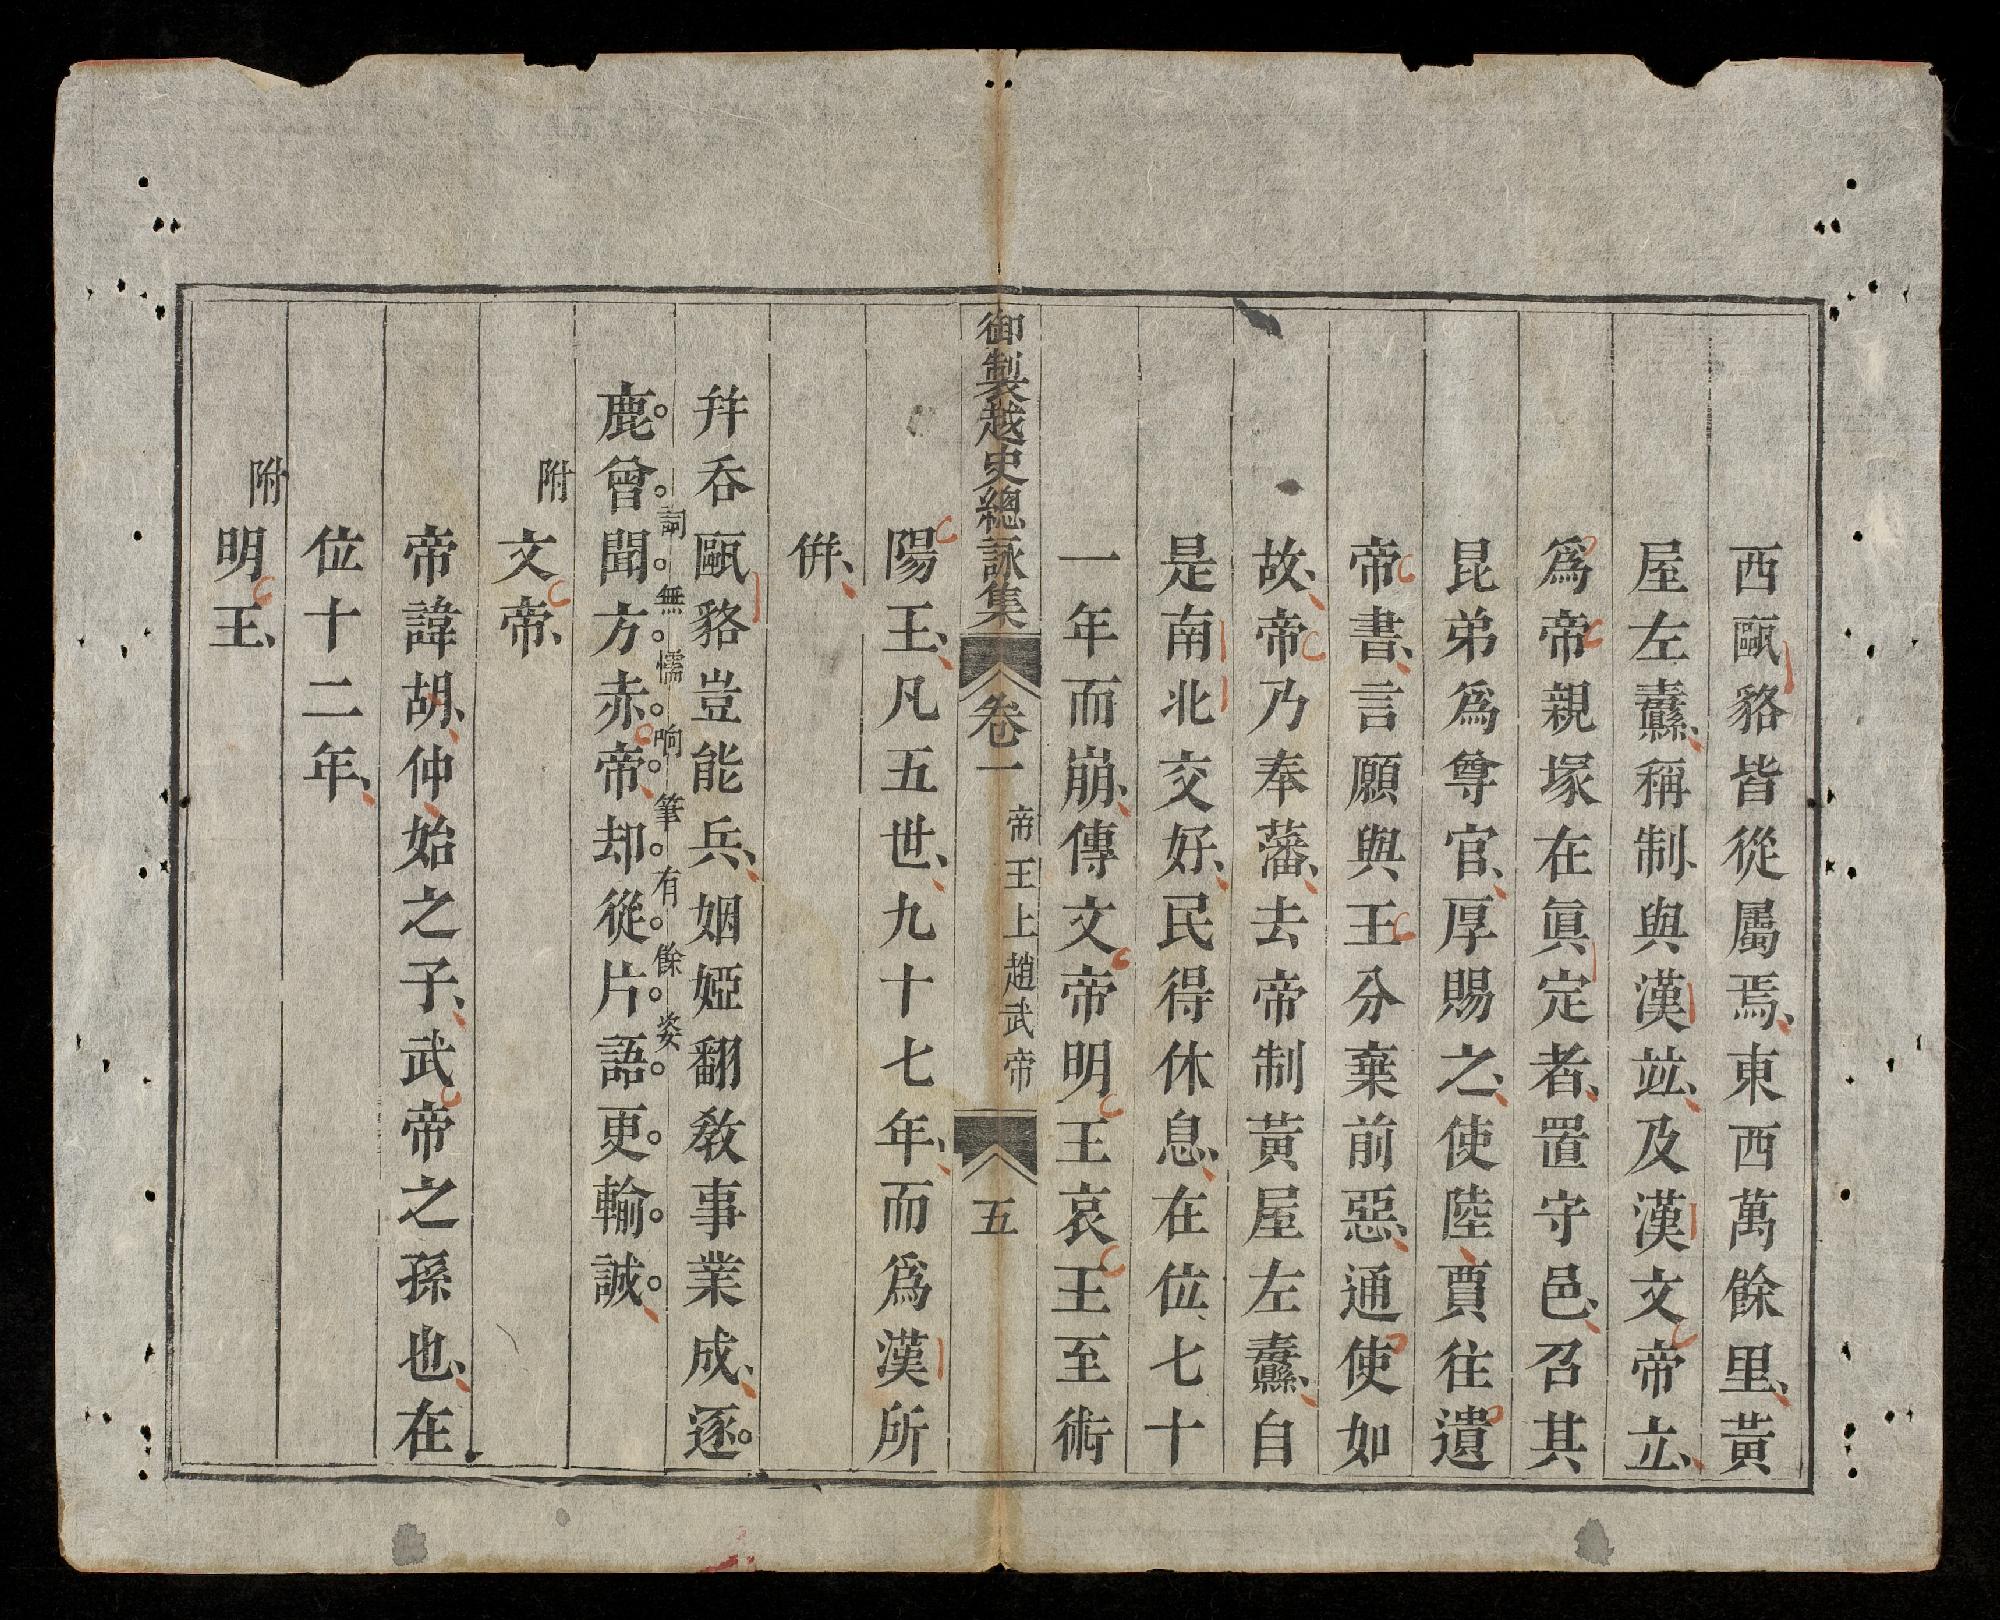 西甌貉皆從屬焉東西萬餘里黃
屋左纛稱制與漢竝及漢文帝立
爲帝親塚在眞定者置守邑召其
昆弟爲尊官厚賜之使陸賈往遺
帝書言願與王分棄前惡通使如
故帝乃奉藩去帝制黃屋左纛自
是南北交好民得休息在位七十
一年而崩傳文帝明王哀王至術
御製越史總詠集 卷一 帝王上趙武帝 五
陽王凡五世九十七年而爲漢所
併
幷呑甌貉豈能兵姻婭翻敎事業成逐
鹿曾聞方赤帝却從片語更輸誠
詞無懦响筆有餘姿
附文帝
帝諱胡仲始之子武帝之孫也在
位十二年
附明王